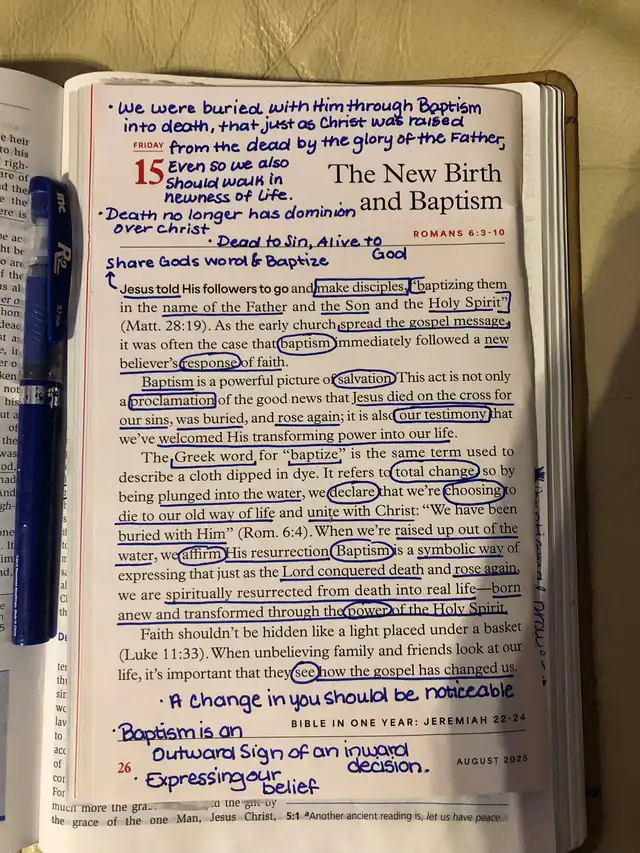 • We were buried with Him through Baptism
into death, that just as Christ was raised
from the dead by the glory of the Father,
Even so we also
Should walk in
newness of life.
FRIDAY
15
The New Birth
and Baptism
• Death no longer has dominion
over Christ
• Dead to Sin, Alive to
God
ROMANS 6:3-10
Share Gods word & Baptize
Jesus told His followers to go and make disciples, "baptizing them
in the name of the Father and the Son and the Holy Spirit"
(Matt. 28:19). As the early church spread the gospel message,
it was often the case that baptism immediately followed a new
believer's response of faith.
Baptism is a powerful picture of salvation. This act is not only
a proclamation of the good news that Jesus died on the cross for
our sins, was buried, and rose again; it is also our testimony that
we've welcomed His transforming power into our life.
The Greek word for "baptize" is the same term used to
describe a cloth dipped in dye. It refers to total change, so by
being plunged into the water, we declare that we're choosing to
die to our old way of life and unite with Christ: "We have been
buried with Him" (Rom. 6:4). When we're raised up out of the
water, we affirm His resurrection. Baptism is a symbolic way of
expressing that just as the Lord conquered death and rose again,
we are spiritually resurrected from death into real life—born
anew and transformed through the power of the Holy Spirit.
Faith shouldn't be hidden like a light placed under a basket
(Luke 11:33). When unbelieving family and friends look at our
life, it's important that they see how the gospel has changed us.
• A change in you should be noticeable
BIBLE IN ONE YEAR: JEREMIAH 22-24
• Baptism is an
Outward Sign of an inward
decision.
• Expressing our
belief
26
AUGUST 2025
much more the gra
d the gift by
the grace of the one Man, Jesus Christ,
5:1 ªAnother ancient reading is, let us have peace